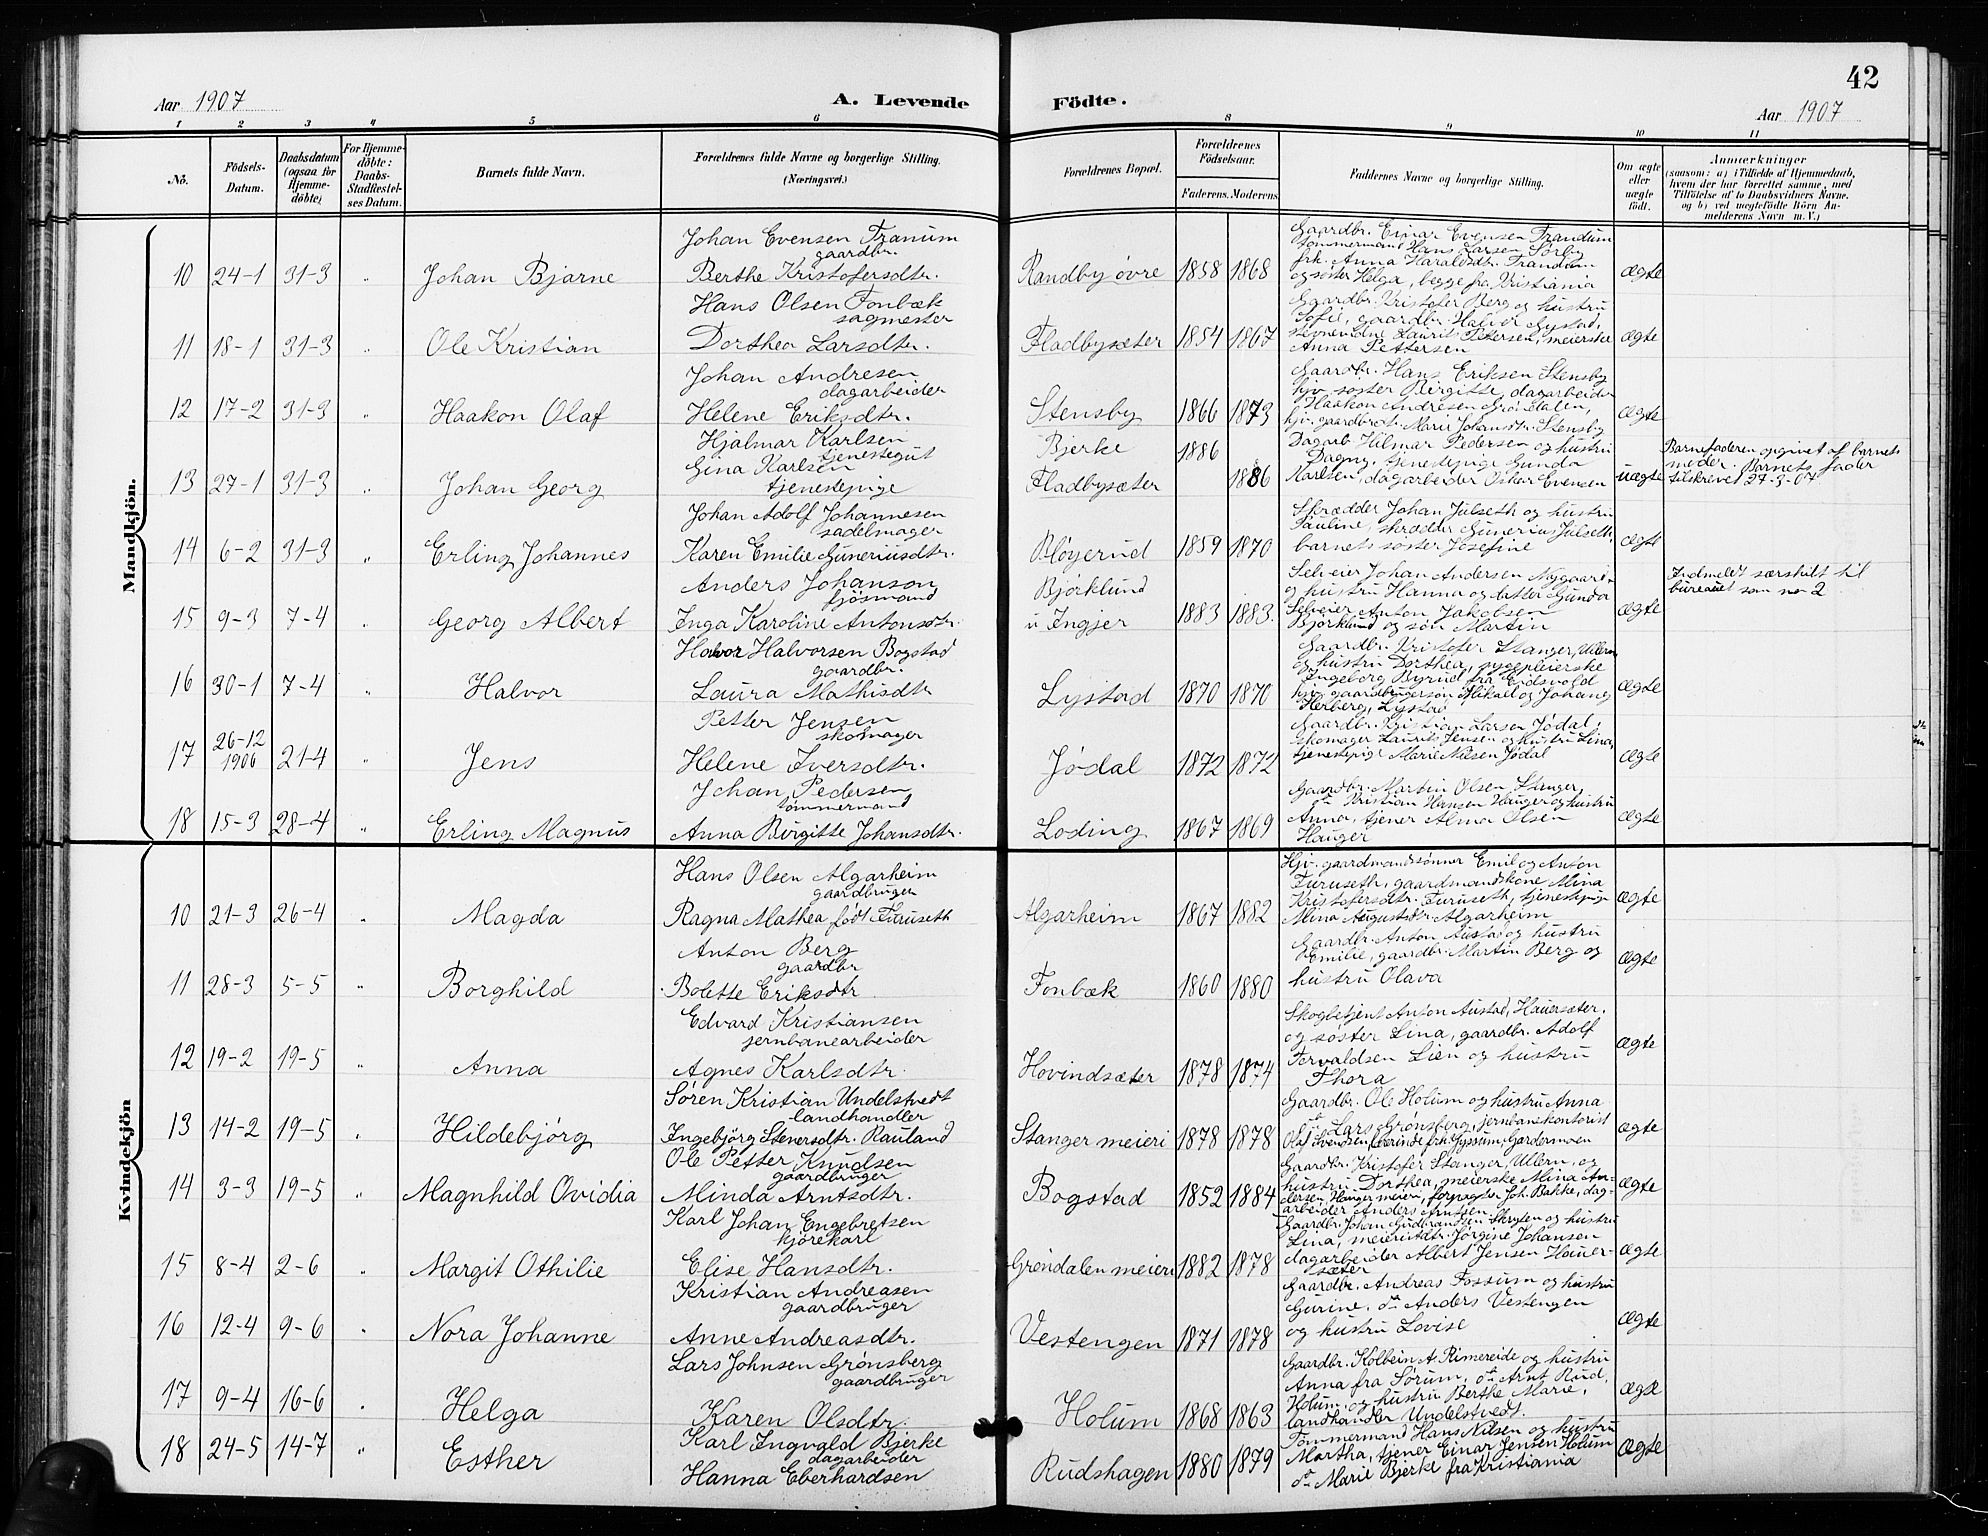 42
Aar 1907
A. Levende Födte.
Aar 1907
1 2 3 4 5 6 8 9 10 11
No.
Födsels-
Datum.
Daabsdatum
(ogsaa for
Hjemme-
döbte)
For Hjemme-
döbte:
Daabs-
Stadfæstel-
ses Datum.
Barnets fulde Navn.
Forældrenes fulde Navne og borgerlige Stilling.
(Næringsvei.)
Forældrenes Bopæl.
Forældrenes
Födselsaar.
Faderens. Moderens.
Faddernes Navne og borgerlige Stilling.
Om ægte
eller
uægte
født.
Anmærkninger
(saasom: a) i Tilfælde af Hjemmedaab,
hvem der har forrettet samme, med
Tilföielse af to Daabsvidners Navne.
og b) ved uægtefödte Börn An-
melderens Navn m. V.)
Mandkjön.
10 24-1 31-3 " Johan Bjarne
Johan Evensen Tranum
gaardbr.
Berthe Kristofersdtr.
Randby øvre 1858 1868
Gaardbr. Einar Evensen Trandum
tømmermand Hans Larsen Sørby
frk. Anna Haraldsdtr. Trandum
og søster Helga, begge fra Kristiania
ægte
11 18-1 31-3 " Ole Kristian
Hans Olsen Fonbæk
sagmester
Dorthea Larsdtr.
Fladbysæter 1854 1867
Gaardbr. Kristofer Berg og hustru
Sofie, gaardbr. Halvor Nystad,
Laurits Pettersen, meierske
Anna Pettersen
ægte
12 17-2 31-3 " Haakon Olaf
Johan Andresen
dagarbeider
Helene Eriksdtr.
Stensby 1866 1873
Gaardbr. Hans Eriksen Stensby
hjv. søster Birgitte, dagarbeider
Haakon Andresen Grøndalen,
hjv. gaardbrdt. Marie Johansdtr. Stensby
ægte
13 27-1 31-3 Johan Georg
Hjalmar Karlsen
tjenestegut
Gina Karlsen
tjenestepige
Bjerke 1886
Fladbysæter 1886
Dagarb. Hilmar Pedersen og hustru
Dagny, tjenestepige Gunda
Karlsen, dagarbeider Oskar Evensen
uægte
Barnefaderen opgivet af barnets
moder. Barnets fader
tilskrevet 27-3-07
14 6-2 31-3 " Erling Johannes
Johan Adolf Johannesen
sadelmager
Karen Emilie Guneriusdtr.
Bløyerud 1859 1870
Skrædder Johan Julseth og hustru
Pauline, skrædder Gunerius Julseth,
barnets søster Josefine
ægte
15 9-3 7-4 " Georg Albert
Anders Johanson
fjösmand
Inga Karoline Antonsdtr.
Bjørklund
u Ingjer 1883 1883.
Selveier Johan Andersen Nygaard
og hustru Hanna og datter Gunda
Selveier Anton Jakobsen
Bjørklund og søn Martin
ægte
Indmeldt særskilt til
bureauet som no 2
16 30-1 7-4 " Halvor
Halvor Halvorsen Bogstad
gaardbr.
Laura Mathisdtr
Lystad 1870 1870
Gaardbr. Kristofer Stanger, Ullern
og hustru Dorthea, sygepleierske
Ingeborg Byrud fra Eidsvold
hjv. gaardbrugersøn Mikael og Johan
Herberg, Lystad
ægte
17 26-12
1906 21-4 " Jens
Petter Jensen
skomager
Helene Iversdtr.
Jødal 1872 1872
Gaardbr. Kristian Larsen Jødal,
skomager Laurits Jensen og hustru Lina,
tjenestepige Marie Nilsen Jødal
ægte
18 15-3 28-4 " Erling Magnus
Johan Pedersen
tømmermand
Anna Birgitte Johansdtr.
Loding 1867 1869
Gaardbr. Martin Olsen Stanger,
do Kristian Hansen Hauger og hustru
Anna, tjener Alma Olsen
Hauger
ægte
Kvindekjön
10 21-3 26-4 " Magda
Hans Olsen Algarheim
gaardbruger
Ragna Mathea født Furuseth
Algarheim 1867 1882
Hjv. gaardmandsønner Emil og Anton
Furuseth, gaardmandskone Mina
Kristofersdtr. Furuseth, tjenestepige
Mina Augustdtr. Algarheim
ægte
11 28-3 5-5 " Borghild
Anton Berg
gaardbr
Bolette Eriksdtr
Fonbæk 1860 1880
Gaardbr. Anton Austad og hustru
Emilie, gaardbr. Martin Berg og
hustru Olava
ægte
12 19-2 19-5 " Anna
Edvard Kristiansen
jernbanearbeider
Agnes Karlsdtr.
Hovindsæter 1878 1874
Skogbetjent Anton Austad, Hauersæter,
og søster Lina, gaardbr. Adolf
Torvaldsen Lien og hustru
Thora
ægte
13 14-2 19-5 " Hildebjørg
Søren Kristian Undelstvedt
landhandler
Ingebjørg Stenersdtr. Rauland
Stanger meieri 1878 1878
Gaardbr. Ole Holum og hustru Anna
do Lars Grønsberg, jernbanekontorist
Olaf Svendsen, frk. Jyssum, Gardermoen
ægte
14 3-3 19-5 " Magnhild Ovidia
Ole Petter Knudsen
gaardbruger
Minda Arntsdtr.
Bogstad 1852 1884
Gaardbr. Kristofer Stanger, Ullern, og
hustru Dorthea, meierske Mina An-
dersen, Hauger meieri, forpagter Joh. Bakke, dag-
arbeider Anders Arntsen
ægte
15 8-4 2-6 " Margit Othilie
Karl Johan Engebretsen
kjörekarl
Elise Hansdtr.
Grøndalen meieri 1882 1878
Gaardbr. Johan Gudbrandsen Skryten og hustru
Lina, Jørgine Johansen
dagarbeider Albert Jensen Hauer-
sæter
ægte
16 12-4 9-6 " Nora Johanne
Kristian Andreasen
gaardbruger
Anne Andreasdtr.
Vestengen 1871 1878
Gaardbr. Andreas Fossum og hustru
Gurine, do Anders Vestengen
og hustru Lovise
ægte
17 9-4 16-6 " Helga
Lars Johnsen Grønsberg
gaardbruger
Karen Olsdtr.
Holum 1868 1863
Gaardbr. Kolbein A. Rimereide og hustru
Anna fra Sørum, do Arnt Ruud,
Holum, og hustru Berthe Marie,
landhandler Undelstvedt.
ægte
18 24-5 14-7 " Esther
Karl Ingvald Bjerke
dagarbeider
Hanna Eberhardsen
Rudshagen 1880 1879
Tømmermand Hans Nilsen og hustru
Martha, tjener Einar Jensen Holum
do Marie Bjerke fra Kristiania
ægte